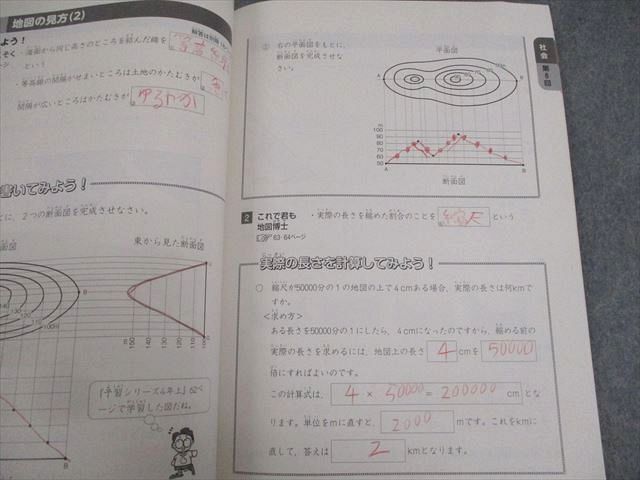 地図の見方(2)
よう！
・海面から同じ高さのところを結んだ線を
という
・等高線の間隔がせまいところは土地のかたむきが
間隔が広いところはかたむきが ゆるやか
書いてみよう！
に、2つの断面図を完成させなさい。
断面図
東から見た断面図
B
150
140
130
120
110
100m
『予習シリーズ4年上』62ペ
ージで学習した図だね。
B
社会
第8回
② 右の平面図をもとに、
断面図を完成させな
さい。
平面図
A
B
m
100
90
80
70
60
50
A
B
断面図
2 これで君も
地図博士
63・64ページ
・実際の長さを縮めた割合のことを 縮尺 という
実際の長さを計算してみよう！
○ 縮尺が50000分の1の地図の上で4cmある場合、実際の長さは何kmで
すか。
＜求め方＞
ある長さを50000分の1にしたら、4cmになったのですから、縮める前の
実際の長さを求めるには、地図上の長さ 4 cmを 50000
倍にすればよいのです。
この計算式は、 4 × 50000 = 200000 cm とな
ります。単位をmに直すと、 2000 mです。これをkmに
直して、答えは 2 kmとなります。